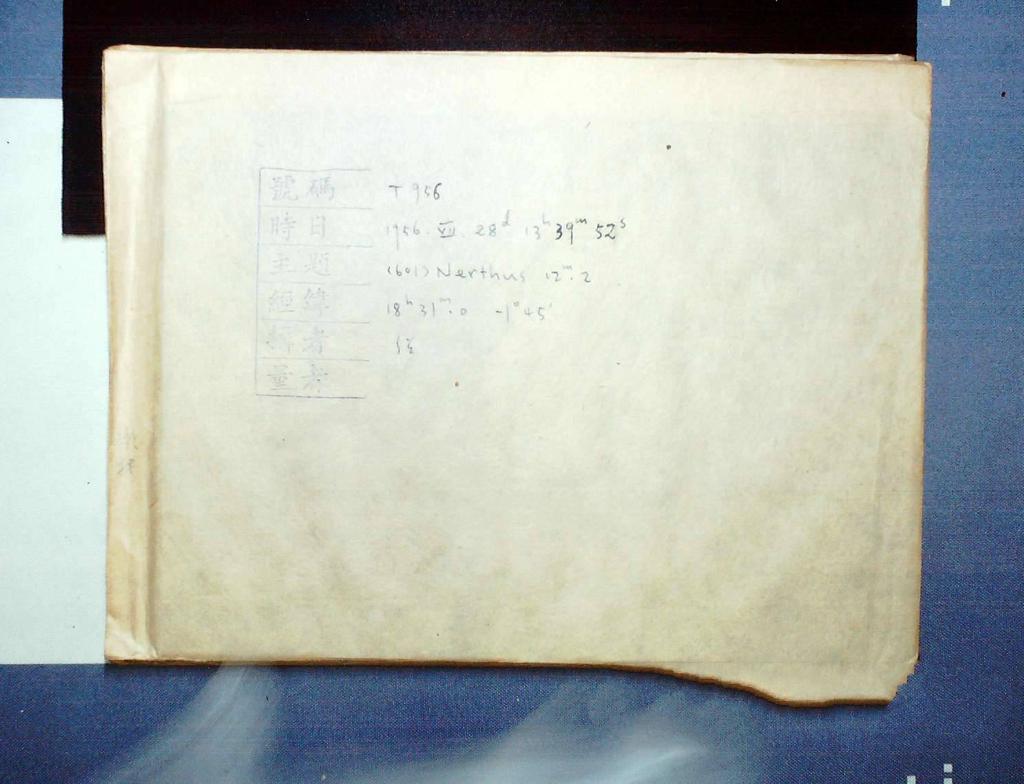 號碼 T 956
時日 1956. VII 28ᵈ 13ʰ 39ᵐ 52ˢ
主題 (601) Nerthus 12ᵐ.2
經緯 18ʰ 31ᵐ.0 -1° 45'
攝者
量者